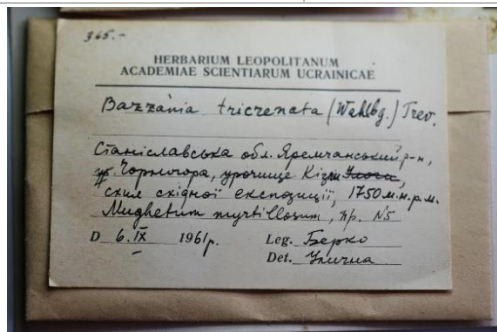 365.-
HERBARIUM LEOPOLITANUM
ACADEMIAE SCIENTIARUM UCRAINICAE
Bazzania tricrenata (Wahlbg.) Trev.
Станіславська обл. Яремчанський р-н,
Чорногора, урочище Кізи
схил східної експозиції, 1750 м.н.р.м.
Mughetum myrtillosum, пр. №5
D 6.IX 1961р. Leg. Берко
Det. Улична